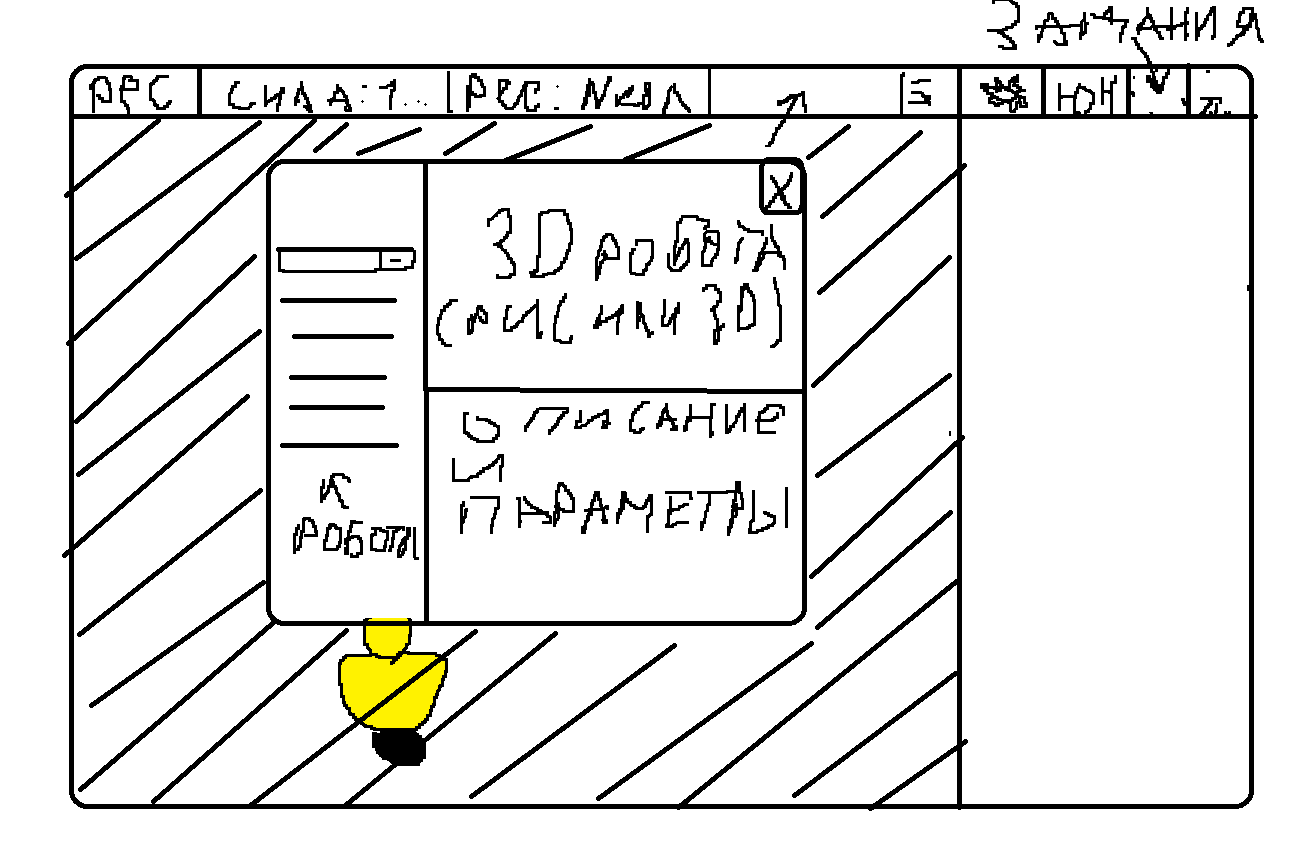 ЗАДАНИЯ
РЕС СИЛА:1... РЕС: Nкол 5 ЮН
X
3D РОБОТА
(РИС ИЛИ 3D)
ОПИСАНИЕ
И
ПАРАМЕТРЫ
К
РОБОТЫ